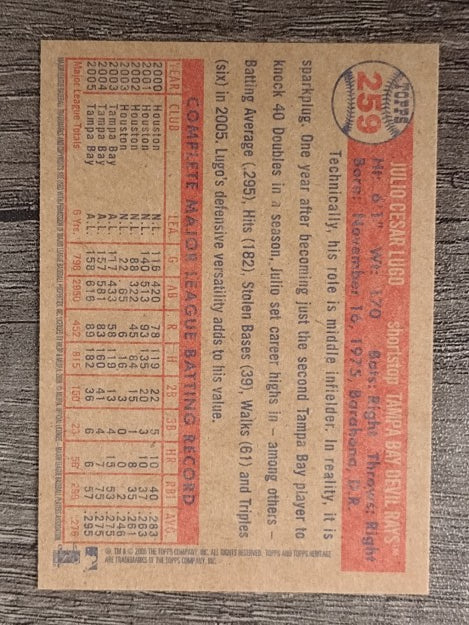 TOPPS
259
JULIO CESAR LUGO shortstop TAMPA BAY DEVIL RAYS™
Ht: 6'1" Wt: 170 Bats: Right Throws: Right
Born: November 16, 1975, Barahona, D.R.
Technically, his role is middle infielder. In reality, it is
sparkplug. One year after becoming just the second Tampa Bay player to
knock 40 Doubles in a season, Julio set career highs in – among others –
Batting Average (.295), Hits (182), Stolen Bases (39), Walks (61) and Triples
(six) in 2005. Lugo's defensive versatility adds to his value.
COMPLETE MAJOR LEAGUE BATTING RECORD
YEAR CLUB LEA G AB R H 2B 3B HR RBI AVG.
2000 Houston N.L. 116 420 78 119 22 5 10 40 .283
2001 Houston N.L. 140 513 93 135 20 3 10 37 .263
2002 Houston N.L. 88 322 45 84 15 1 8 35 .261
2003 Houston N.L. 22 65 6 16 3 0 0 2 .246
2003 Tampa Bay A.L. 117 433 58 119 13 4 15 53 .275
2004 Tampa Bay A.L. 157 581 83 160 41 4 7 75 .275
2005 Tampa Bay A.L. 158 616 89 182 36 6 6 57 .295
Major League Totals 6 Yrs. 798 2950 452 815 150 23 56 299 .276
®, TM & © 2006 THE TOPPS COMPANY, INC. ALL RIGHTS RESERVED. TOPPS AND TOPPS HERITAGE
ARE TRADEMARKS OF THE TOPPS COMPANY, INC.